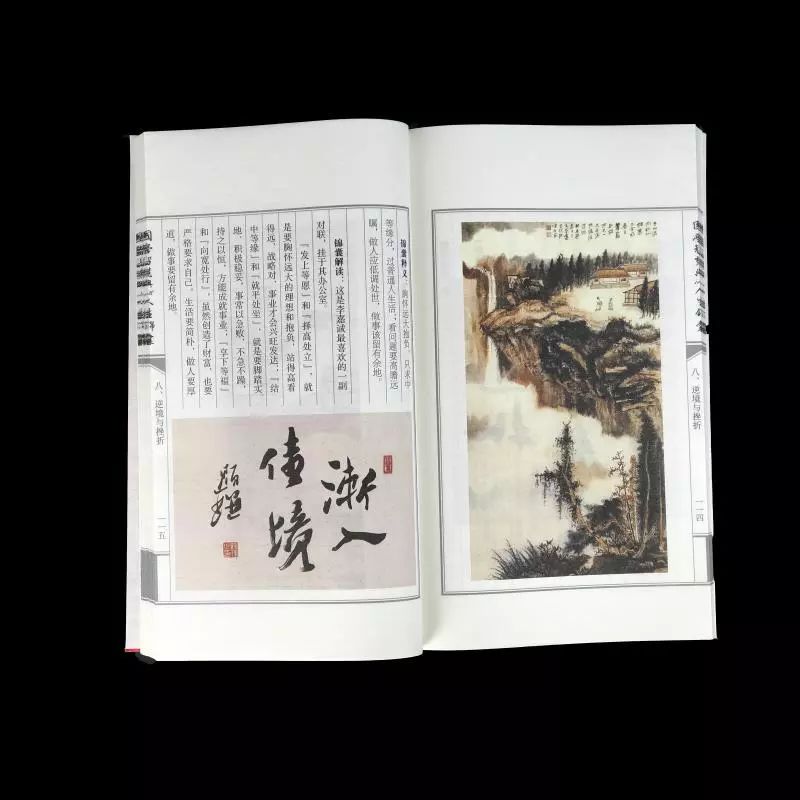 八、逆境与挫折
一一四
锦囊释义：胸怀远大抱负，只求中
等缘分，过普通人生活；看问题要高瞻远
瞩，做人应低调处世，做事该留有余地。
锦囊解读：这是李嘉诚最喜欢的一副
对联，挂于其办公室。
「发上等愿」和「择高处立」，就
是要胸怀远大的理想和抱负，站得高看
得远，战略对，事业才会兴旺发达；「结
中等缘」和「就平处坐」，就是要脚踏实
地，积极稳妥，事常以急败，不急不躁，
持之以恒，方能成就事业；「享下等福」
和「向宽处行」，虽然创造了财富，也要
严格要求自己。生活要简朴，做人要厚
道，做事要留有余地。
漸入
佳境
八、逆境与挫折
一一五